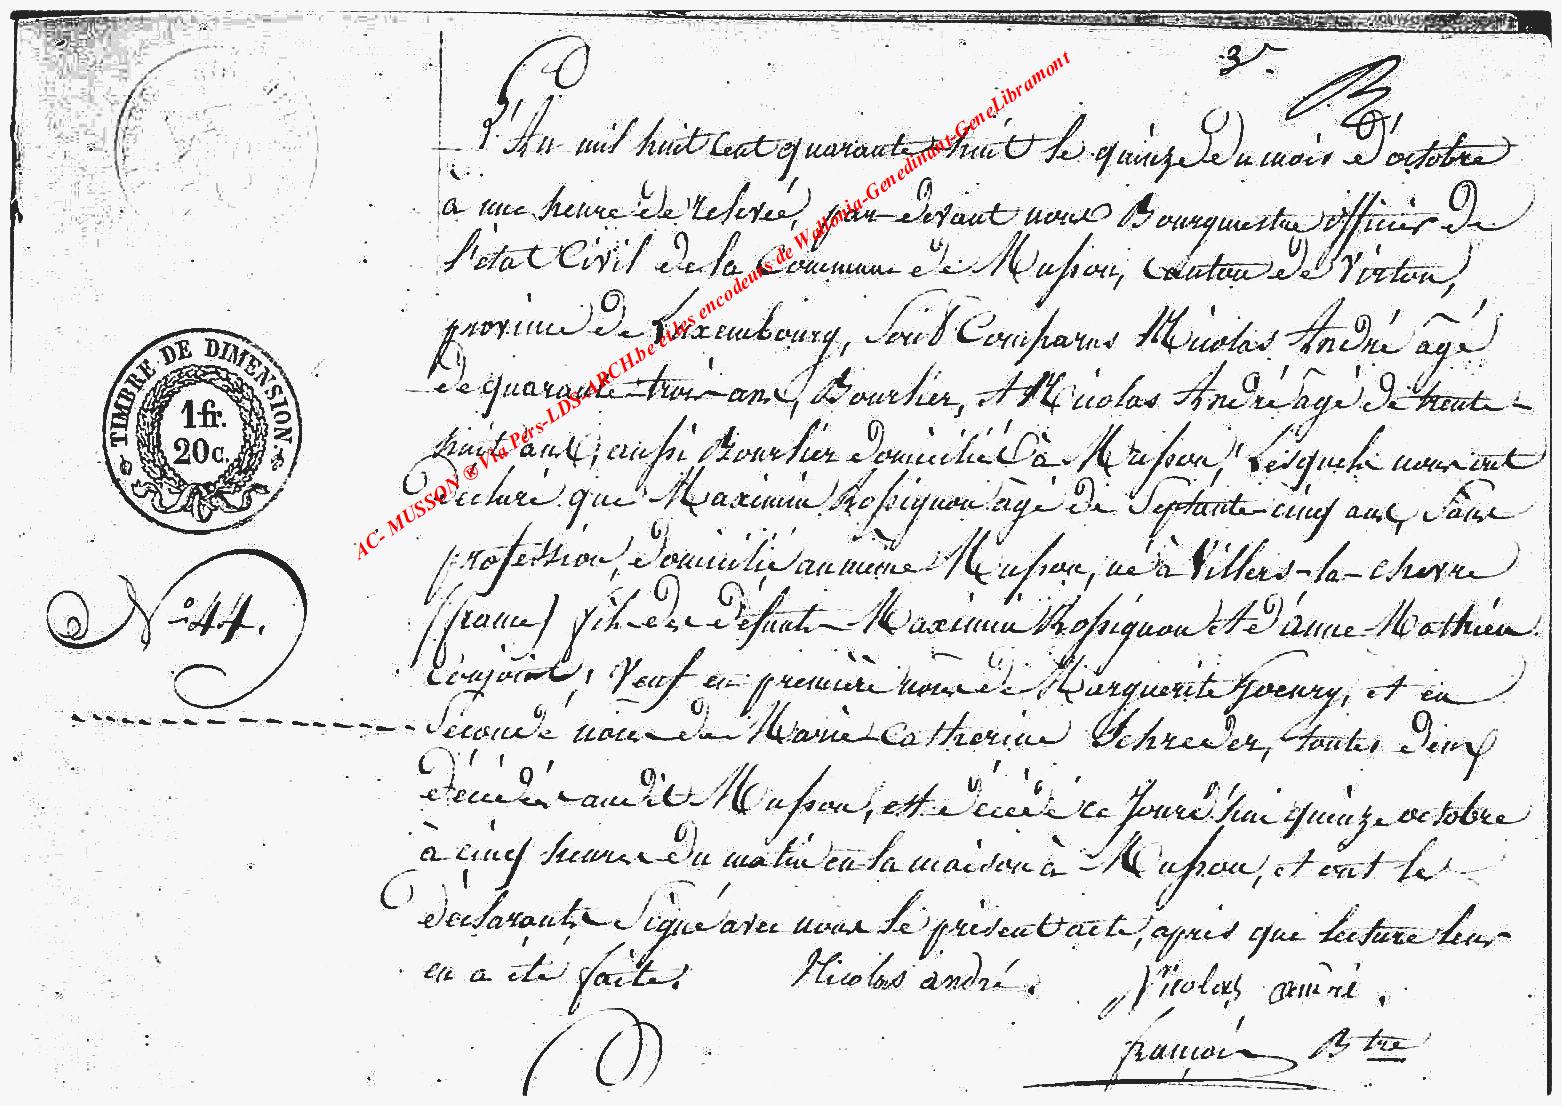 3e.
B
L'An mil huit cent quarante huit le quinze du mois d'octobre
à une heure de relevée, par devant nous Bourgmestre officier de
l'état Civil de la Commune de Musson, Canton de Virton,
province de Luxembourg, sont Comparus Nicolas André âgé
de quarante-trois-ans, Bourlier, et Nicolas André âgé de trente-
huit ans, aussi Bourlier domiciliés à Musson, Lesquels nous ont
déclaré que Maximin Rossignon âgé de Septante-cinq ans, Sans
profession, domicilié au même Musson, né à Villers-la-chevre
(france) fils des défunts Maximin Rossignon et d'anne Mathieu
conjoints, Veuf en première noce de Marguerite Goeury, et en
Seconde noces de Marie Catherine Schreder, toutes deux
décédées audit Musson, est décédé ce Jourd'hui quinze octobre
à cinq heures du matin en sa maison à Musson, et ont les
déclarants Signé avec nous le présent acte, après que lecture leur
en a été faite.
Nicolas andré. Nicolas andré.
françois Btre
TIMBRE DE DIMENSION
1 fr.
20 c.
N° 44.
AC- MUSSON ® Via Pers-LDS-ARCH.be et les encodeurs de Wallonia-Genedinant-GeneLibramont